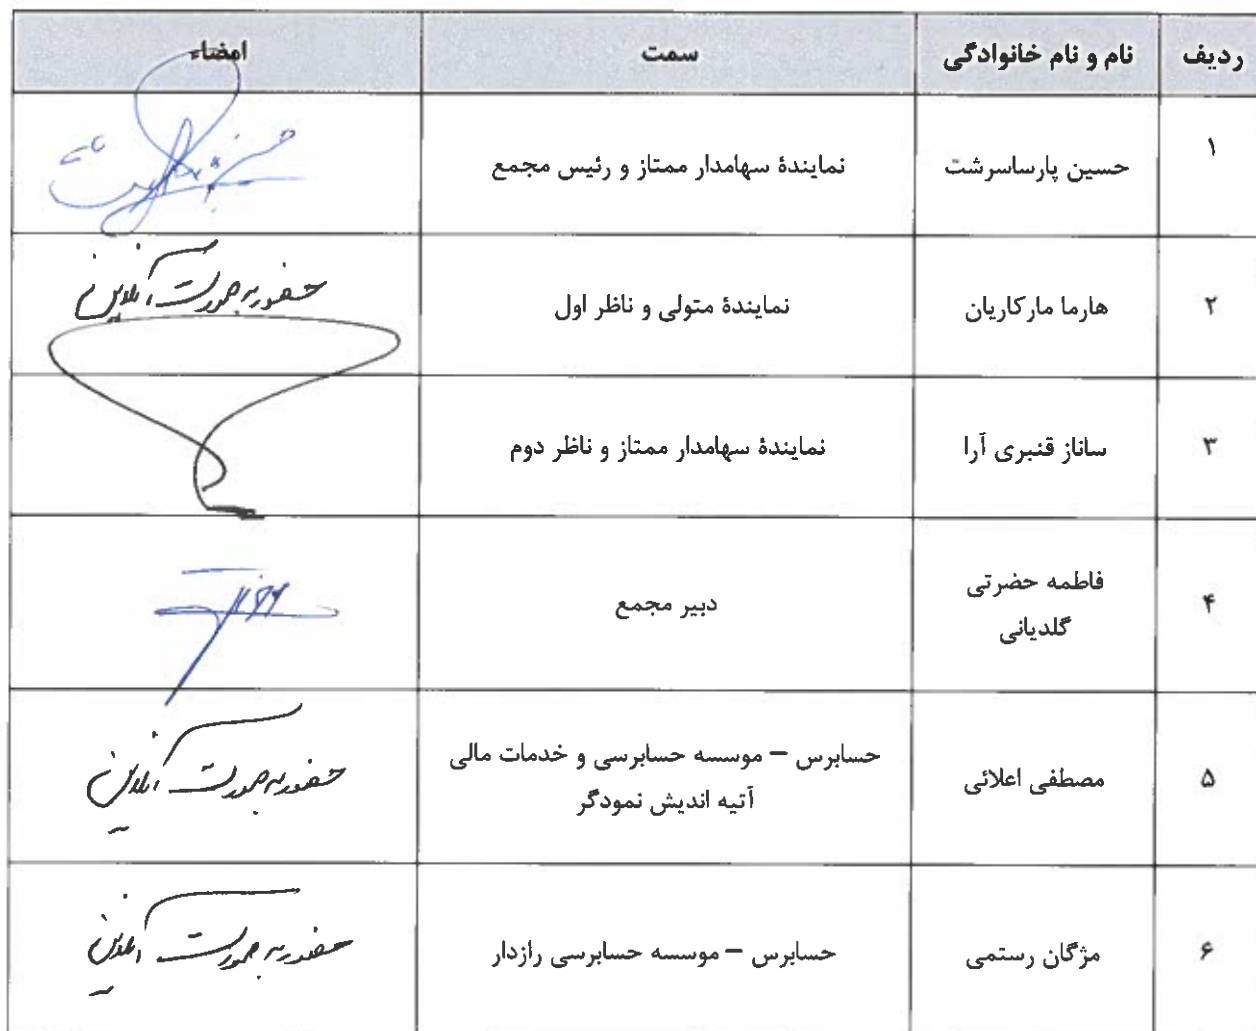 ردیف نام و نام خانوادگی سمت امضاء
۱ حسین پارساسرشت نمایندهٔ سهامدار ممتاز و رئیس مجمع
۲ هارما مارکاریان نمایندهٔ متولی و ناظر اول حضور به صورت آنلاین
۳ ساناز قنبری آرا نمایندهٔ سهامدار ممتاز و ناظر دوم
۴ فاطمه حضرتی
گلدیانی دبیر مجمع
۵ مصطفی اعلائی حسابرس – موسسه حسابرسی و خدمات مالی
آتیه اندیش نمودگر حضور به صورت آنلاین
۶ مژگان رستمی حسابرس – موسسه حسابرسی رازدار حضور به صورت آنلاین